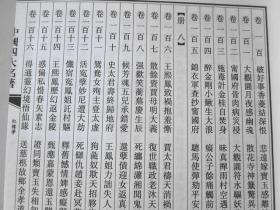 卷一百 破好事香菱結深恨 悲遠嫁寶玉感
卷一百一 大觀園月夜感幽魂 散花寺神籤驚
卷一百二 寧國府骨肉病災祲 大觀園符水驅
卷一百三 施毒計金桂自焚身 昧真禪雨村空遇
卷一百四 醉金剛小鰍生大浪 癡公子餘痛觸前
卷一百五 錦衣軍查抄寧國府 驄馬使彈劾平
【冊八】
卷一百六 王熙鳳致禍抱羞慚 賈太君禱天消禍
卷一百七 散餘資賈母明大義 復世職政老沐天
卷一百八 強歡笑蘅蕪慶生辰 死纏綿瀟湘聞鬼
卷一百九 候芳魂五兒承錯愛 還孽債迎女返真
卷一百十 史太君壽終歸地府 王鳳姐力詘失人
卷一百十一 鴛鴦女殉主登太虛 狗彘奴欺天招夥
卷一百十二 活冤孽妙尼遭大劫 死讎仇趙妾赴冥
卷一百十三 懺宿冤鳳姐托村嫗 釋舊憾情婢感癡
卷一百十四 王熙鳳歷幻返金陵 甄應嘉蒙恩還玉
卷一百十五 惑偏私惜春矢素志 證同類寶玉失相知
卷一百十六 得通靈幻境悟仙緣 送慈柩故鄉全孝道
中國四大名著